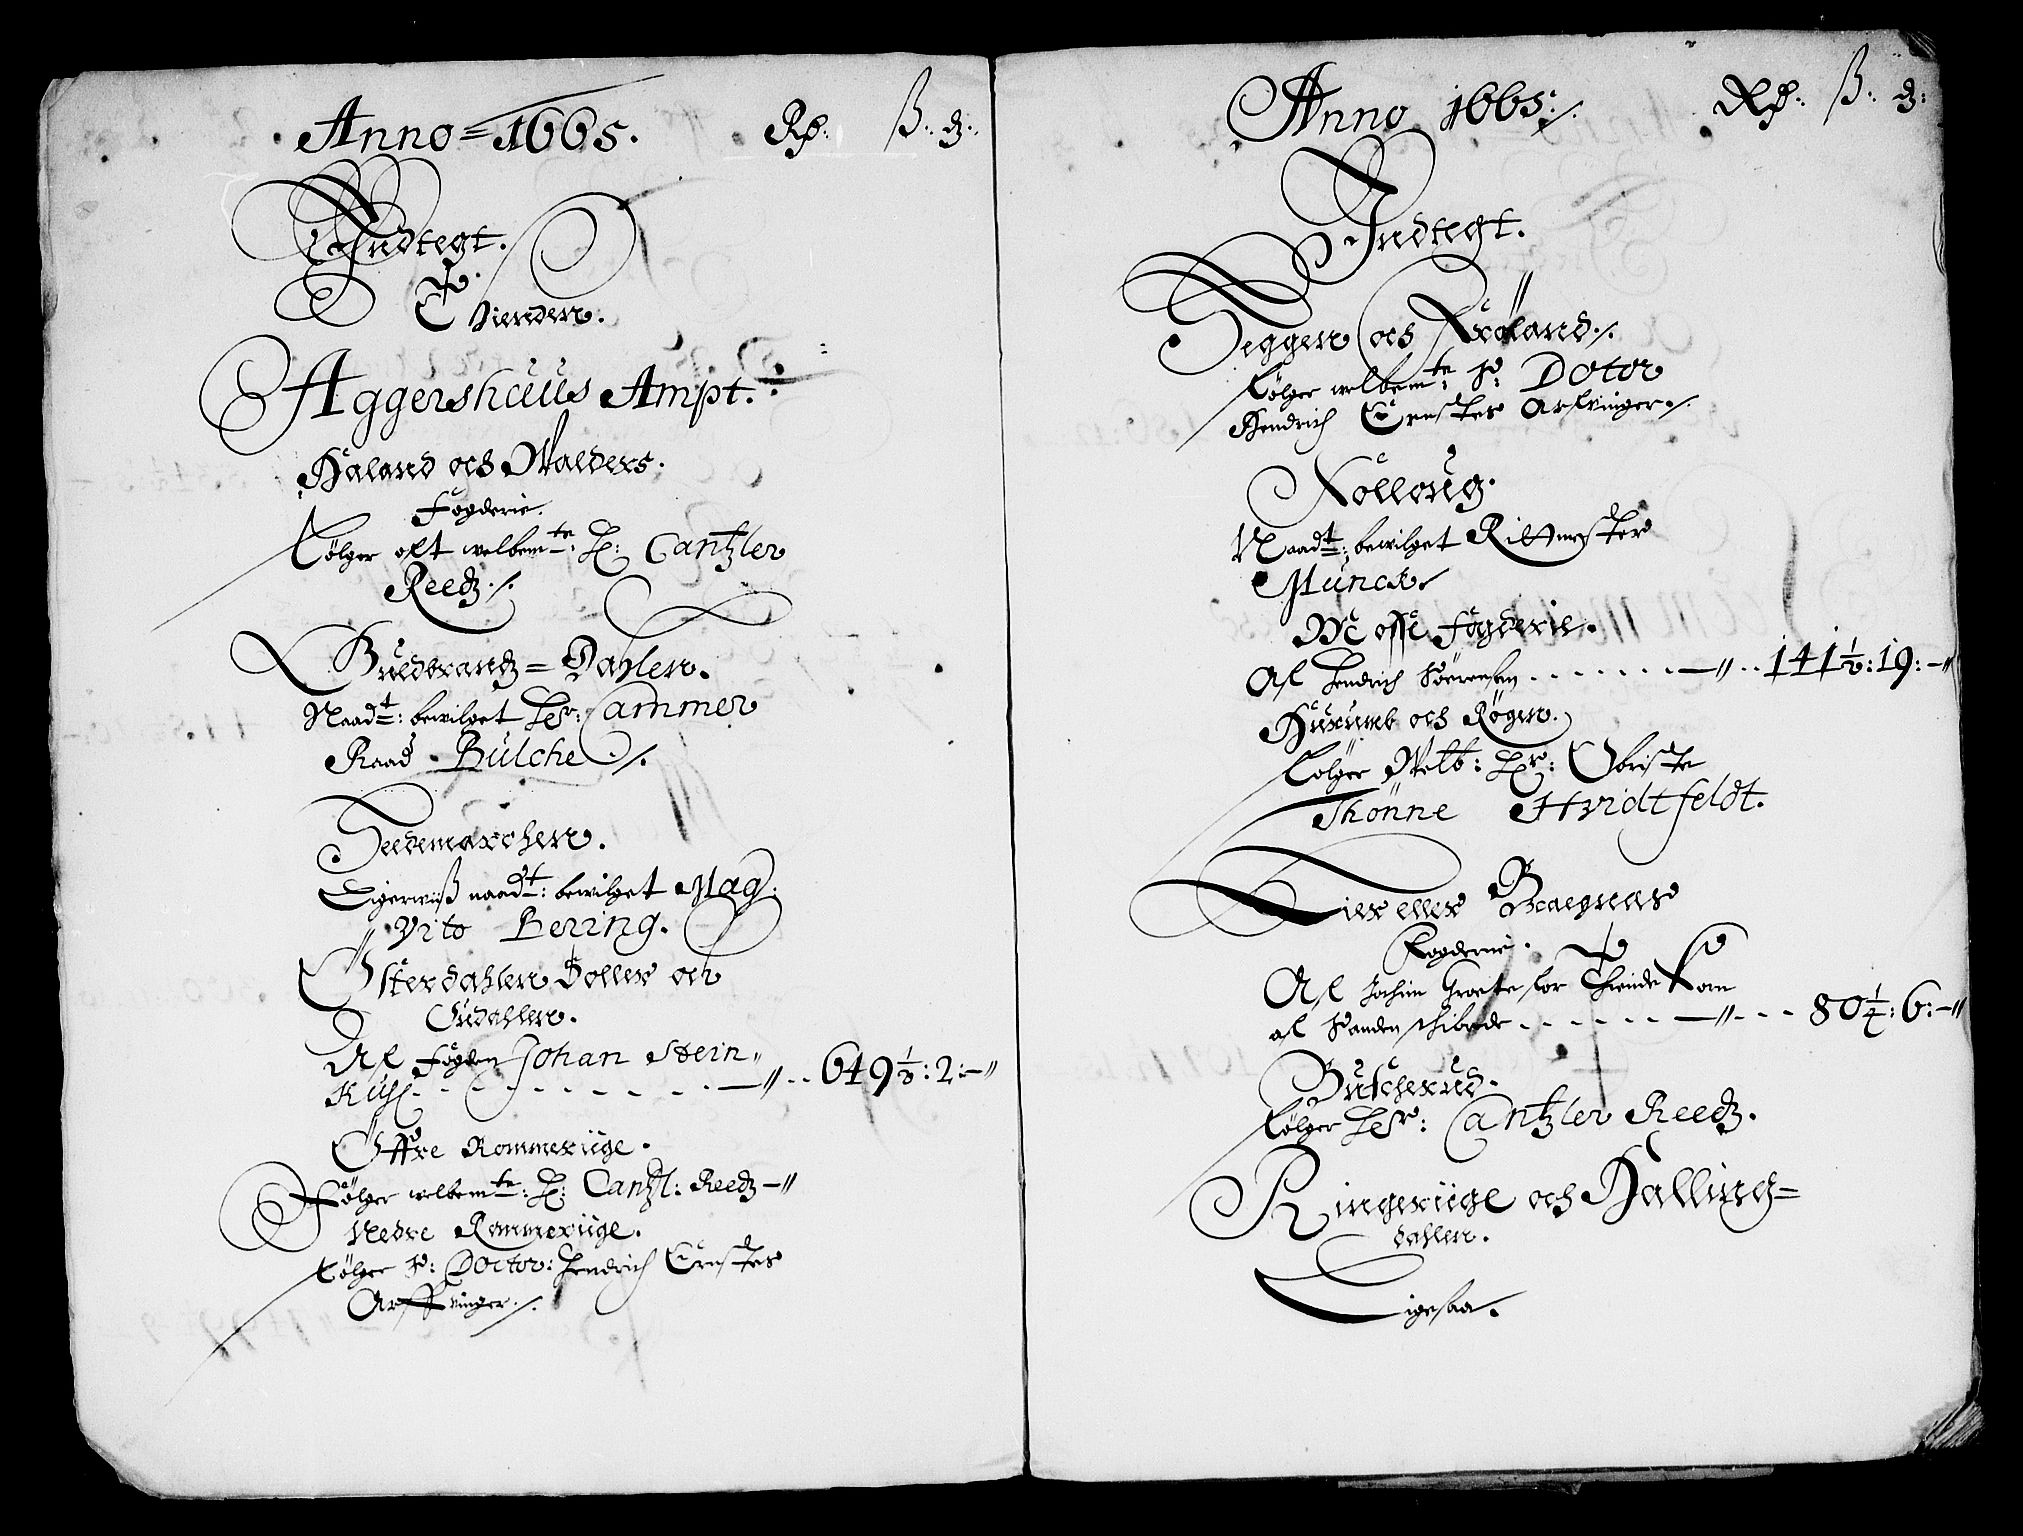 Anno = 1665. Rd. ß. d.
Indtegt.
Thiender.
Aggershuus Ampt.
Haland och Walders.
Fogderie.
Følger oft welbemte: H: Cantzler
Reedz ./.
Guldbrandz = Dahlen.
Naadt: bewilget Hr: Cammer
Raad Bülche ./.
Hedemarchen.
Ligerwiiß naadt: bewilget Mag:
Vito Bering.
Østerdahlen Soller och
Oudahlen.
Af fogden Johan Stein
Kuhl - - - - - - - 649½: 2: -
Øffre Rommeriige.
Følger welbemte: H: Cantzl: Reedz -
Nedre Rommeriige.
Følger S: Doctor: Hendrich Ernstes
Arffvinger ./.
Anno 1665 ./. Rd: ß: d:
Indtegt.
Heggen och Frøland ./.
Følger welbemte: S: Doctor
Hendrich Ernstes Arfvinger ./.
Nølloug.
Naadt: bewilget Rittmester
Munck
Moße fogderie.
Af Hendrich Sørensen - - - - - - 141½: 19: -
Hurumb och Røgen.
Følger Welb: Hr: Obriste
Thønne Hvidtfeldt.
Lier eller Bragnæs
Fogderie.
Af Jochim Groete for Thiende Korn
af Sanden - - - - - - 80¼: 6: -
Butcherud.
Følger Hr: Cantzler Reedz.
Ringeriige och Halling=
dahlen.
Ligesaa.